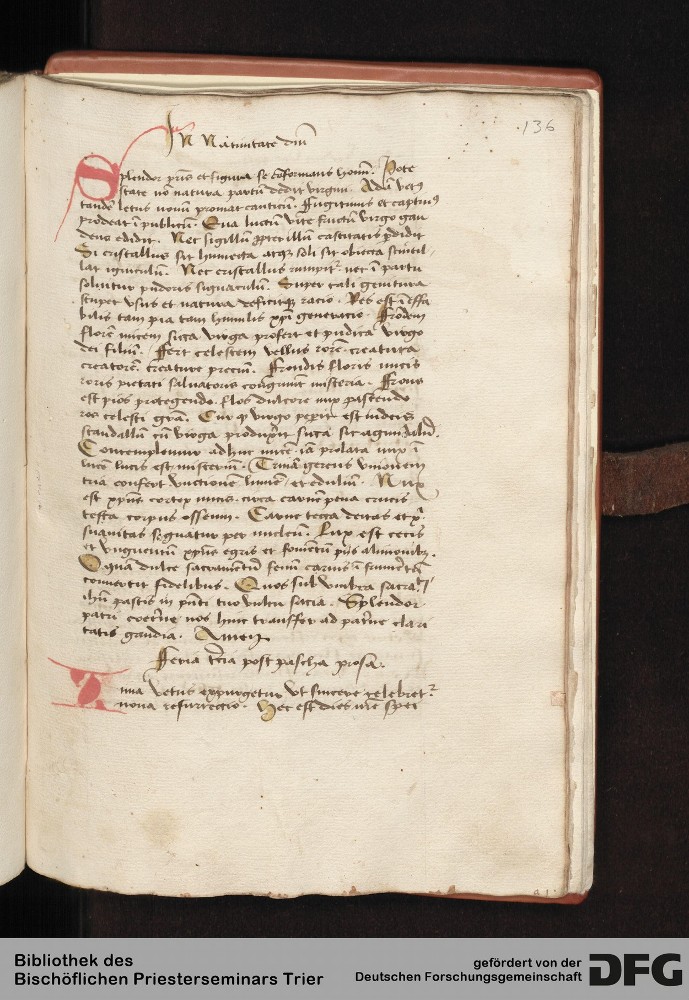 136
In Natiuitate dni
Splendor pris et figura se cõformans homi. Pote
state nõ natura partũ dedit virgini. Adã vetꝰ
tandẽ letus nouũ promat canticũ. Fugitiuus et captiuꝰ
prodeat ĩ publicũ. Eua luctũ vite fructũ virgo gau
dens edidit. Nec sigillũ ꝓpter illũ castitatis ꝑdidit
Si cristallus sit humecta atqꝫ soli sit obiecta scintil
lat igniculũ. Nec cristallus rumpitᷣ nec ĩ partu
soluitur pudoris signaculũ. Super tali genitura
stupet vsus et natura deficitqꝫ racio. Res est ĩ effa
bilis tam pia tam humilis xpi generacio. Frondẽ
florẽ nucem sicca virga profert et pudica virgo
dei filiũ. Fert celestem vellus rorẽ creatura
creatorẽ creature preciũ. Frondis floris nucis
roris pietati saluatoris congruunt misteria. Frons
est xpos protegendo flos dulcore nux pascendo
ros celesti grã. Cur ꝙ virgo peperit est iudeis
scandalũ cũ virga produxerit sicca sic amigdalũ.
Contemplemur adhuc nucẽ nã prolata nux ĩ
lucẽ lucis est misteriũ. Trinã gerens vnionem
tria confert vnctionẽ lumẽ et edulium. Nux
est xpus cortex nucis circa carnẽ pena crucis
testa corpus osseum. Carne tecta deitas et xpi
suauitas signatur per nucleũ. Lux est cecis
et vnguentũ xpus egris et fomẽtũ piis alimonibꝫ.
O quã dulce sacramentũ fenũ carnis ĩ frumẽtũ
conuertit fidelibus. Quos sub vmbra sacrã
ihu pascis in pñti tuo vultu sacia. Splendor
patri coeterne nos hinc transfer ad paterne clari
tatis gaudia. Amen
Feria tercia post pascha prosa.
Zima vetus expurgetur vt sincere celebretᷣ
noua resurrectio. Hec est dies nre spei
Bibliothek des
Bischöflichen Priesterseminars Trier
gefördert von der
Deutschen Forschungsgemeinschaft
DFG